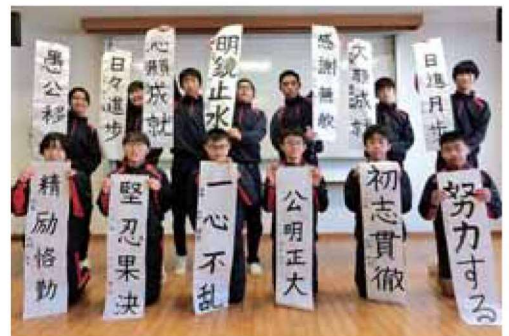 愚公移
日々進歩
心願成就
明鏡止水
感謝無
日進月歩
精励恪勤
堅忍果決
一心不乱
公明正大
初志貫徹
努力する